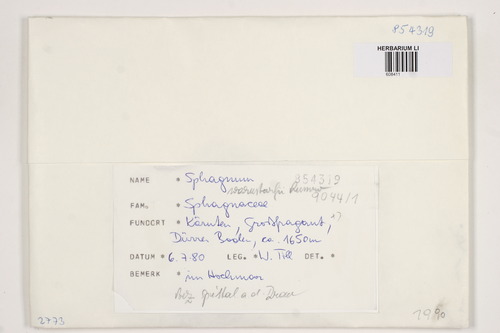 854319
HERBARIUM LI
608411
NAME * Sphagnum 854319
warnstorfii Russow 9044/1
FAM. * Sphagnaceae
FUNDORT * Kärnten, Großfragant,
Dürrer Boden, ca. 1650m
DATUM * 6.7.80 LEG. * W. Till DET. *
BEMERK * im Hochmoor
Bez Spittal a d Drau
2773
1990